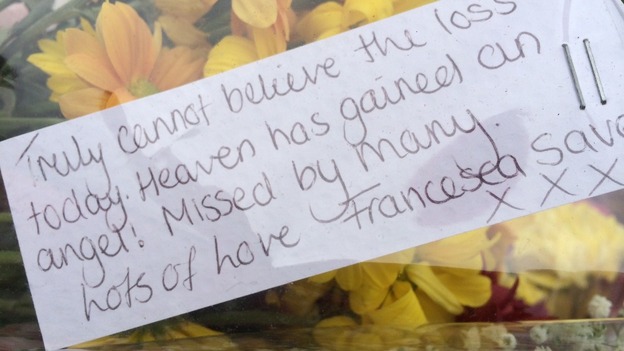 Truly cannot believe the loss
today. Heaven has gained an
angel! Missed by many.
Lots of Love Francesca Sava
x x x